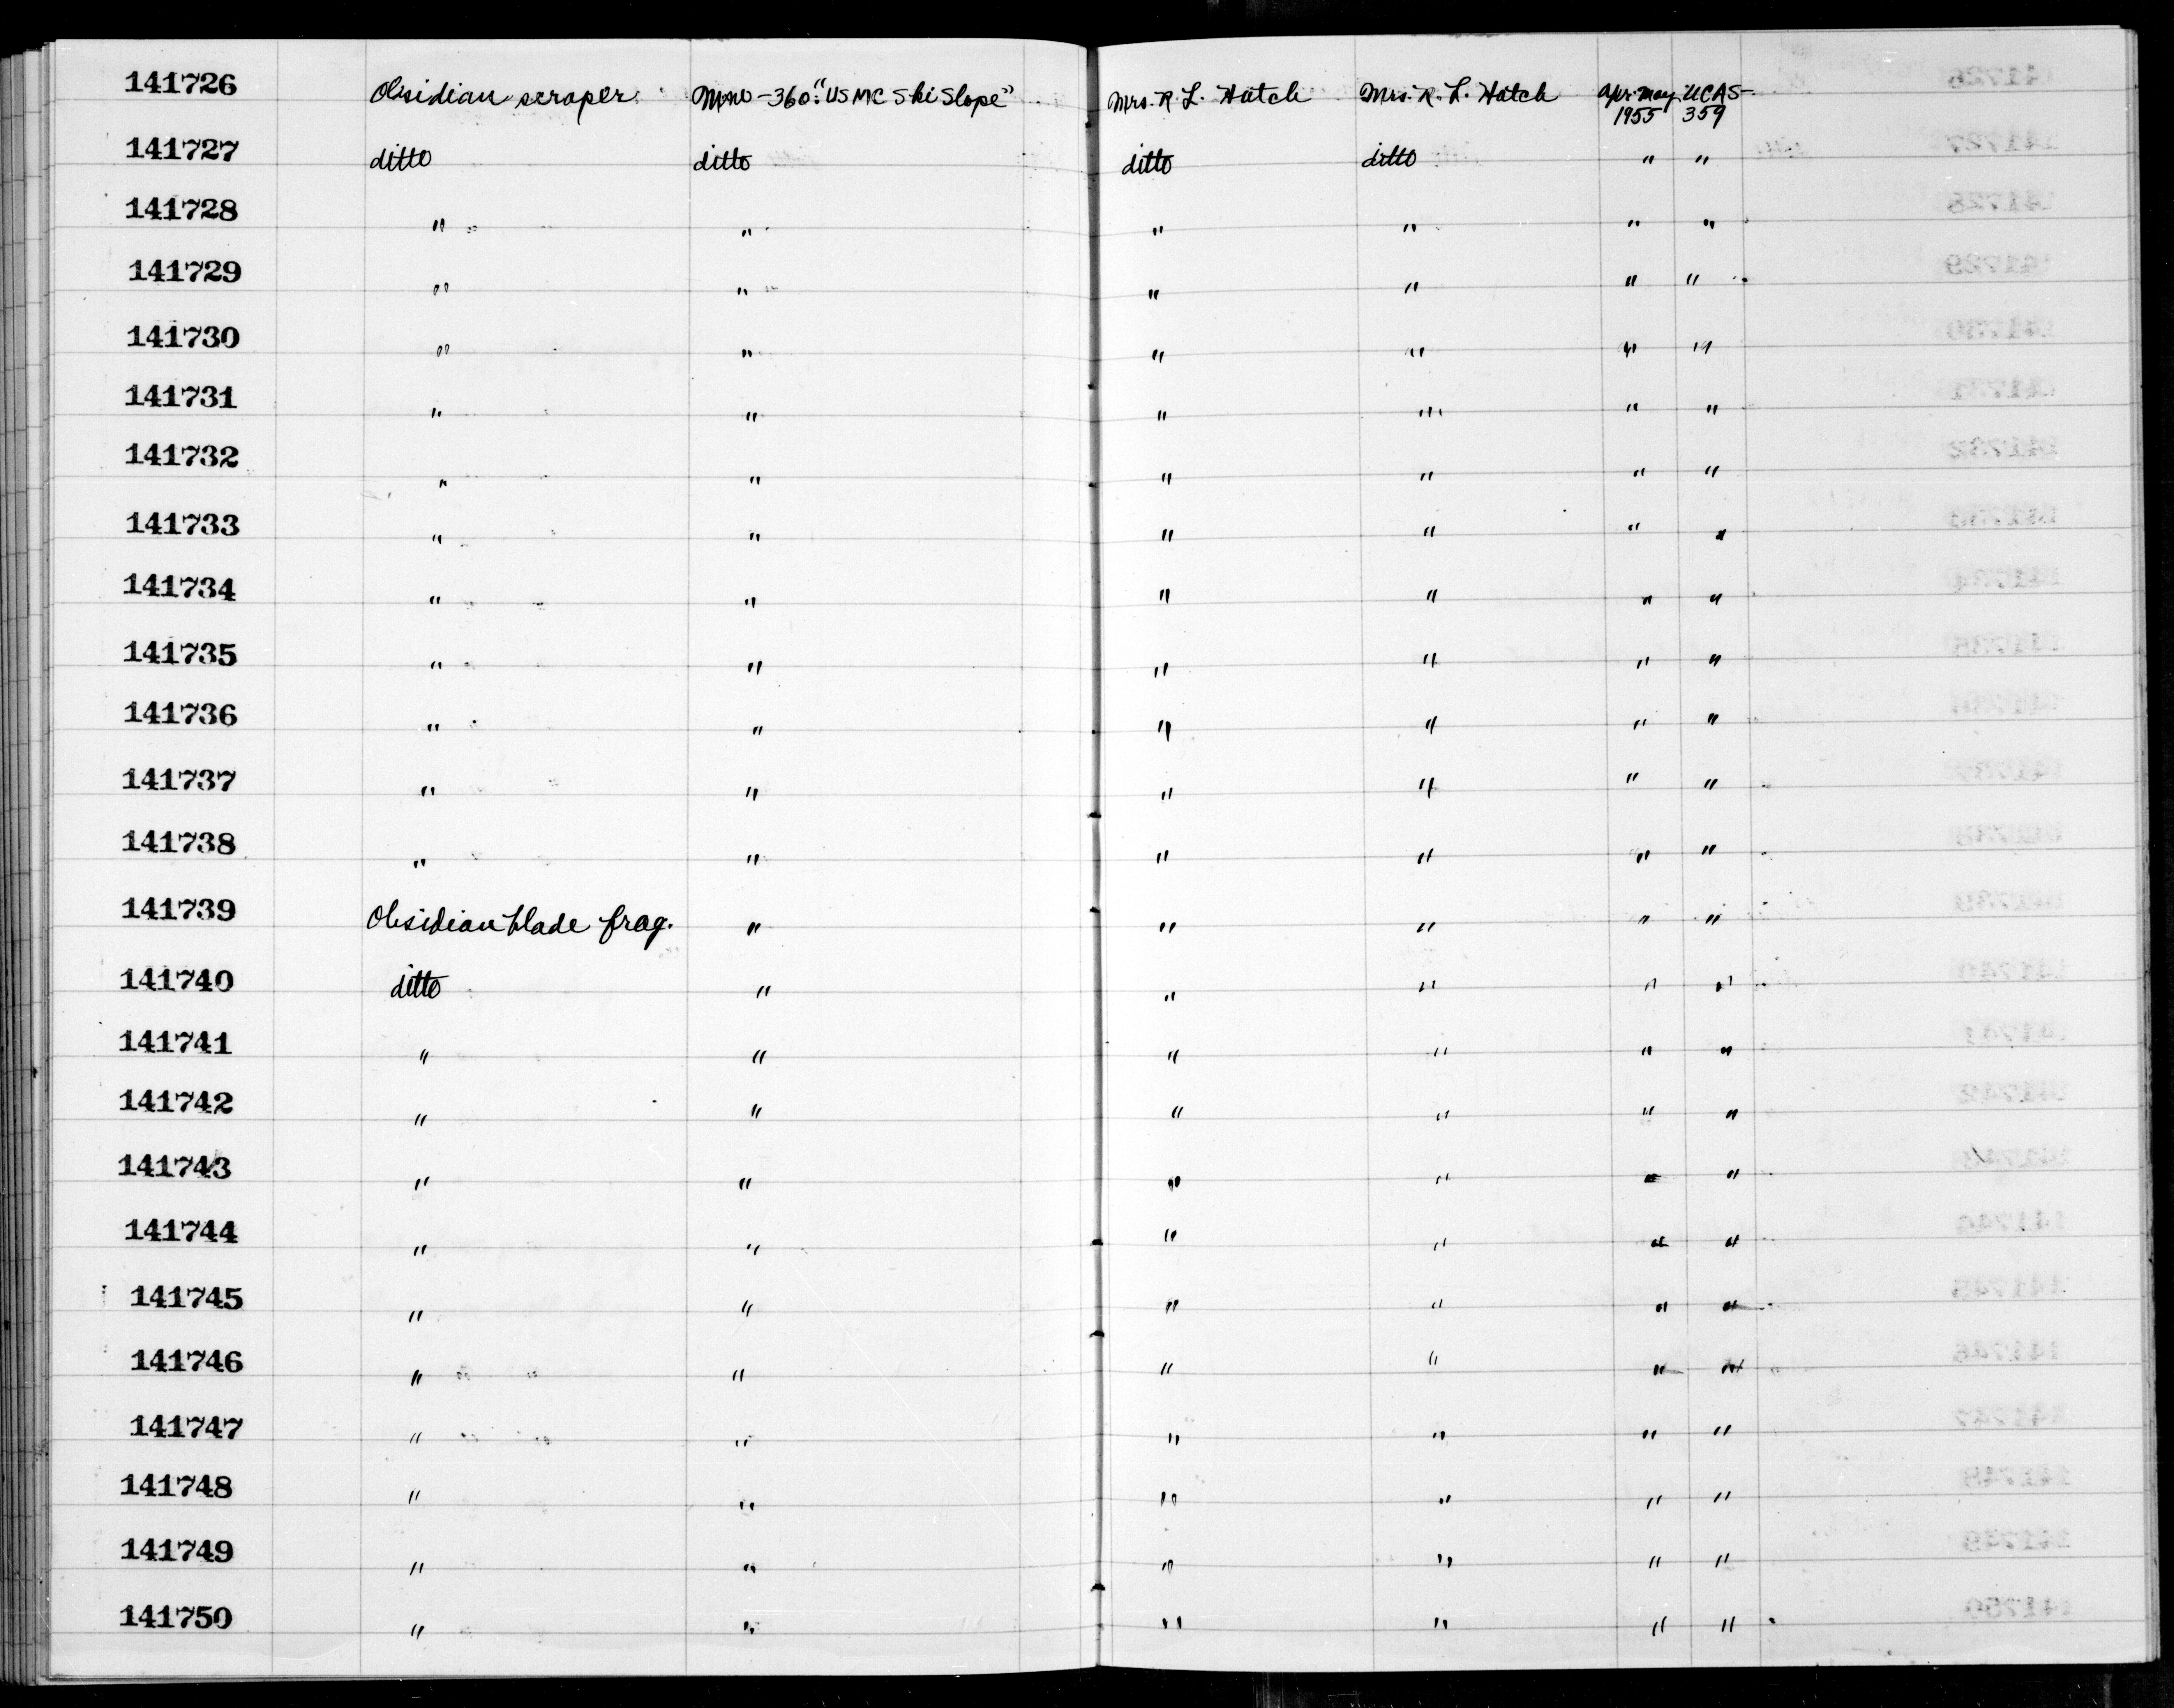 141726 Obsidian scraper Mno-360: "USMC Ski Slope" Mrs. R. L. Hatch Mrs. R. L. Hatch Apr-May 1955 UCAS-359
141727 ditto ditto ditto ditto " "
141728 " " " " " "
141729 " " " " " "
141730 " " " " " "
141731 " " " " " "
141732 " " " " " "
141733 " " " " " "
141734 " " " " " "
141735 " " " " " "
141736 " " " " " "
141737 " " " " " "
141738 " " " " " "
141739 Obsidian blade frag. " " " " "
141740 ditto " " " " "
141741 " " " " " "
141742 " " " " " "
141743 " " " " " "
141744 " " " " " "
141745 " " " " " "
141746 " " " " " "
141747 " " " " " "
141748 " " " " " "
141749 " " " " " "
141750 " " " " " "